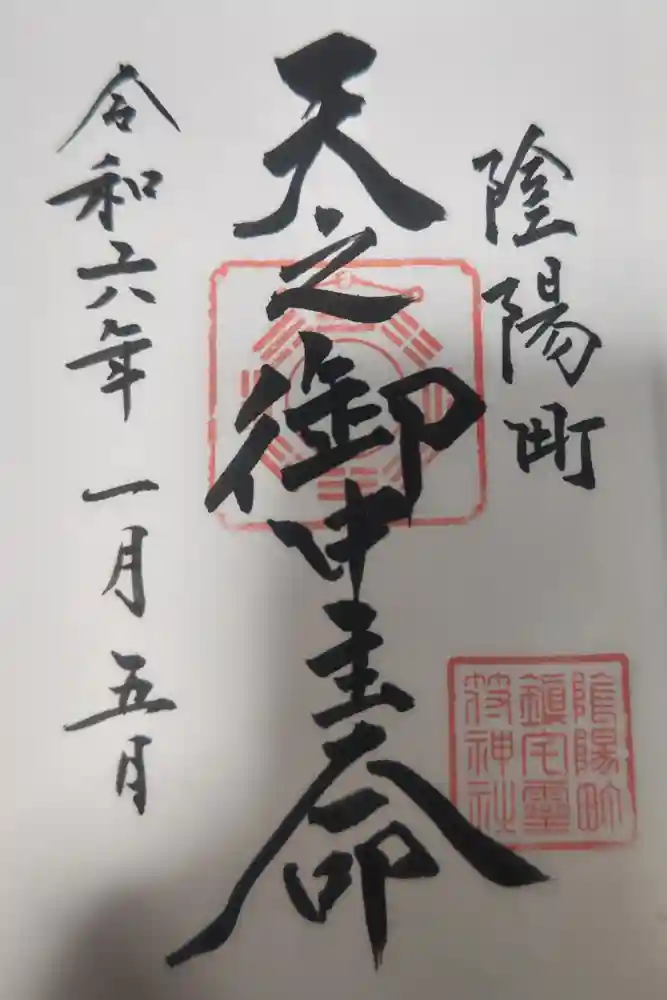 陰陽町
天之御中主命
令和六年一月五月
陰陽町
鎮宅霊
符神社